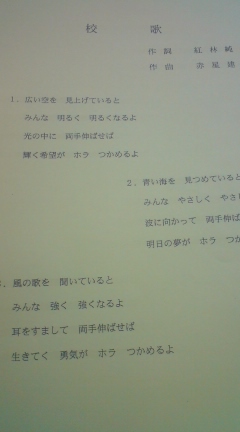 校歌
作詞 紅林純
作曲
1．広い空を 見上げていると
みんな 明るく 明るくなるよ
光の中に 両手伸ばせば
輝く希望が ホラ つかめるよ
2．青い海を 見つめていると
みんな やさしく やさ
波に向かって 両手伸ば
明日の夢が ホラ つか
風の歌を 聞いていると
みんな 強く 強くなるよ
耳をすまして 両手伸ばせば
生きてく 勇気が ホラ つかめるよ